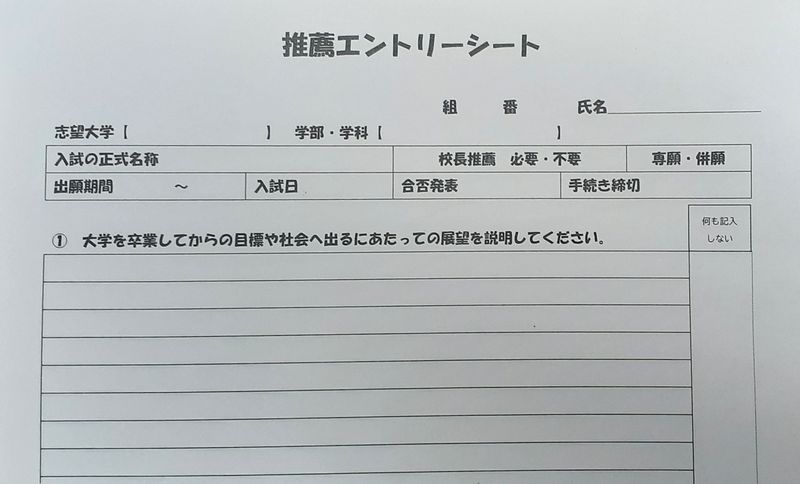 推薦エントリーシート
組 番 氏名
志望大学【 】 学部・学科【 】
入試の正式名称 校長推薦 必要・不要 専願・併願
出願期間 ～ 入試日 合否発表 手続き締切
何も記入
しない
① 大学を卒業してからの目標や社会へ出るにあたっての展望を説明してください。